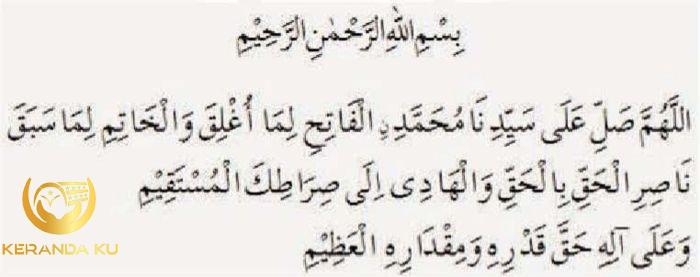 بِسْمِ اللهِ الرَّحْمٰنِ الرَّحِيْمِ
اللَّهُمَّ صَلِّ عَلَى سَيِّدِنَا مُحَمَّدِنِ الْفَاتِحِ لِمَا أُغْلِقَ وَالْخَاتِمِ لِمَا سَبَقَ
نَاصِرِ الْحَقِّ بِالْحَقِّ وَالْهَادِى اِلَى صِرَاطِكَ الْمُسْتَقِيْمِ
وَعَلَى آلِهِ حَقَّ قَدْرِهِ وَمِقْدَارِهِ الْعَظِيْمِ
KERANDA KU